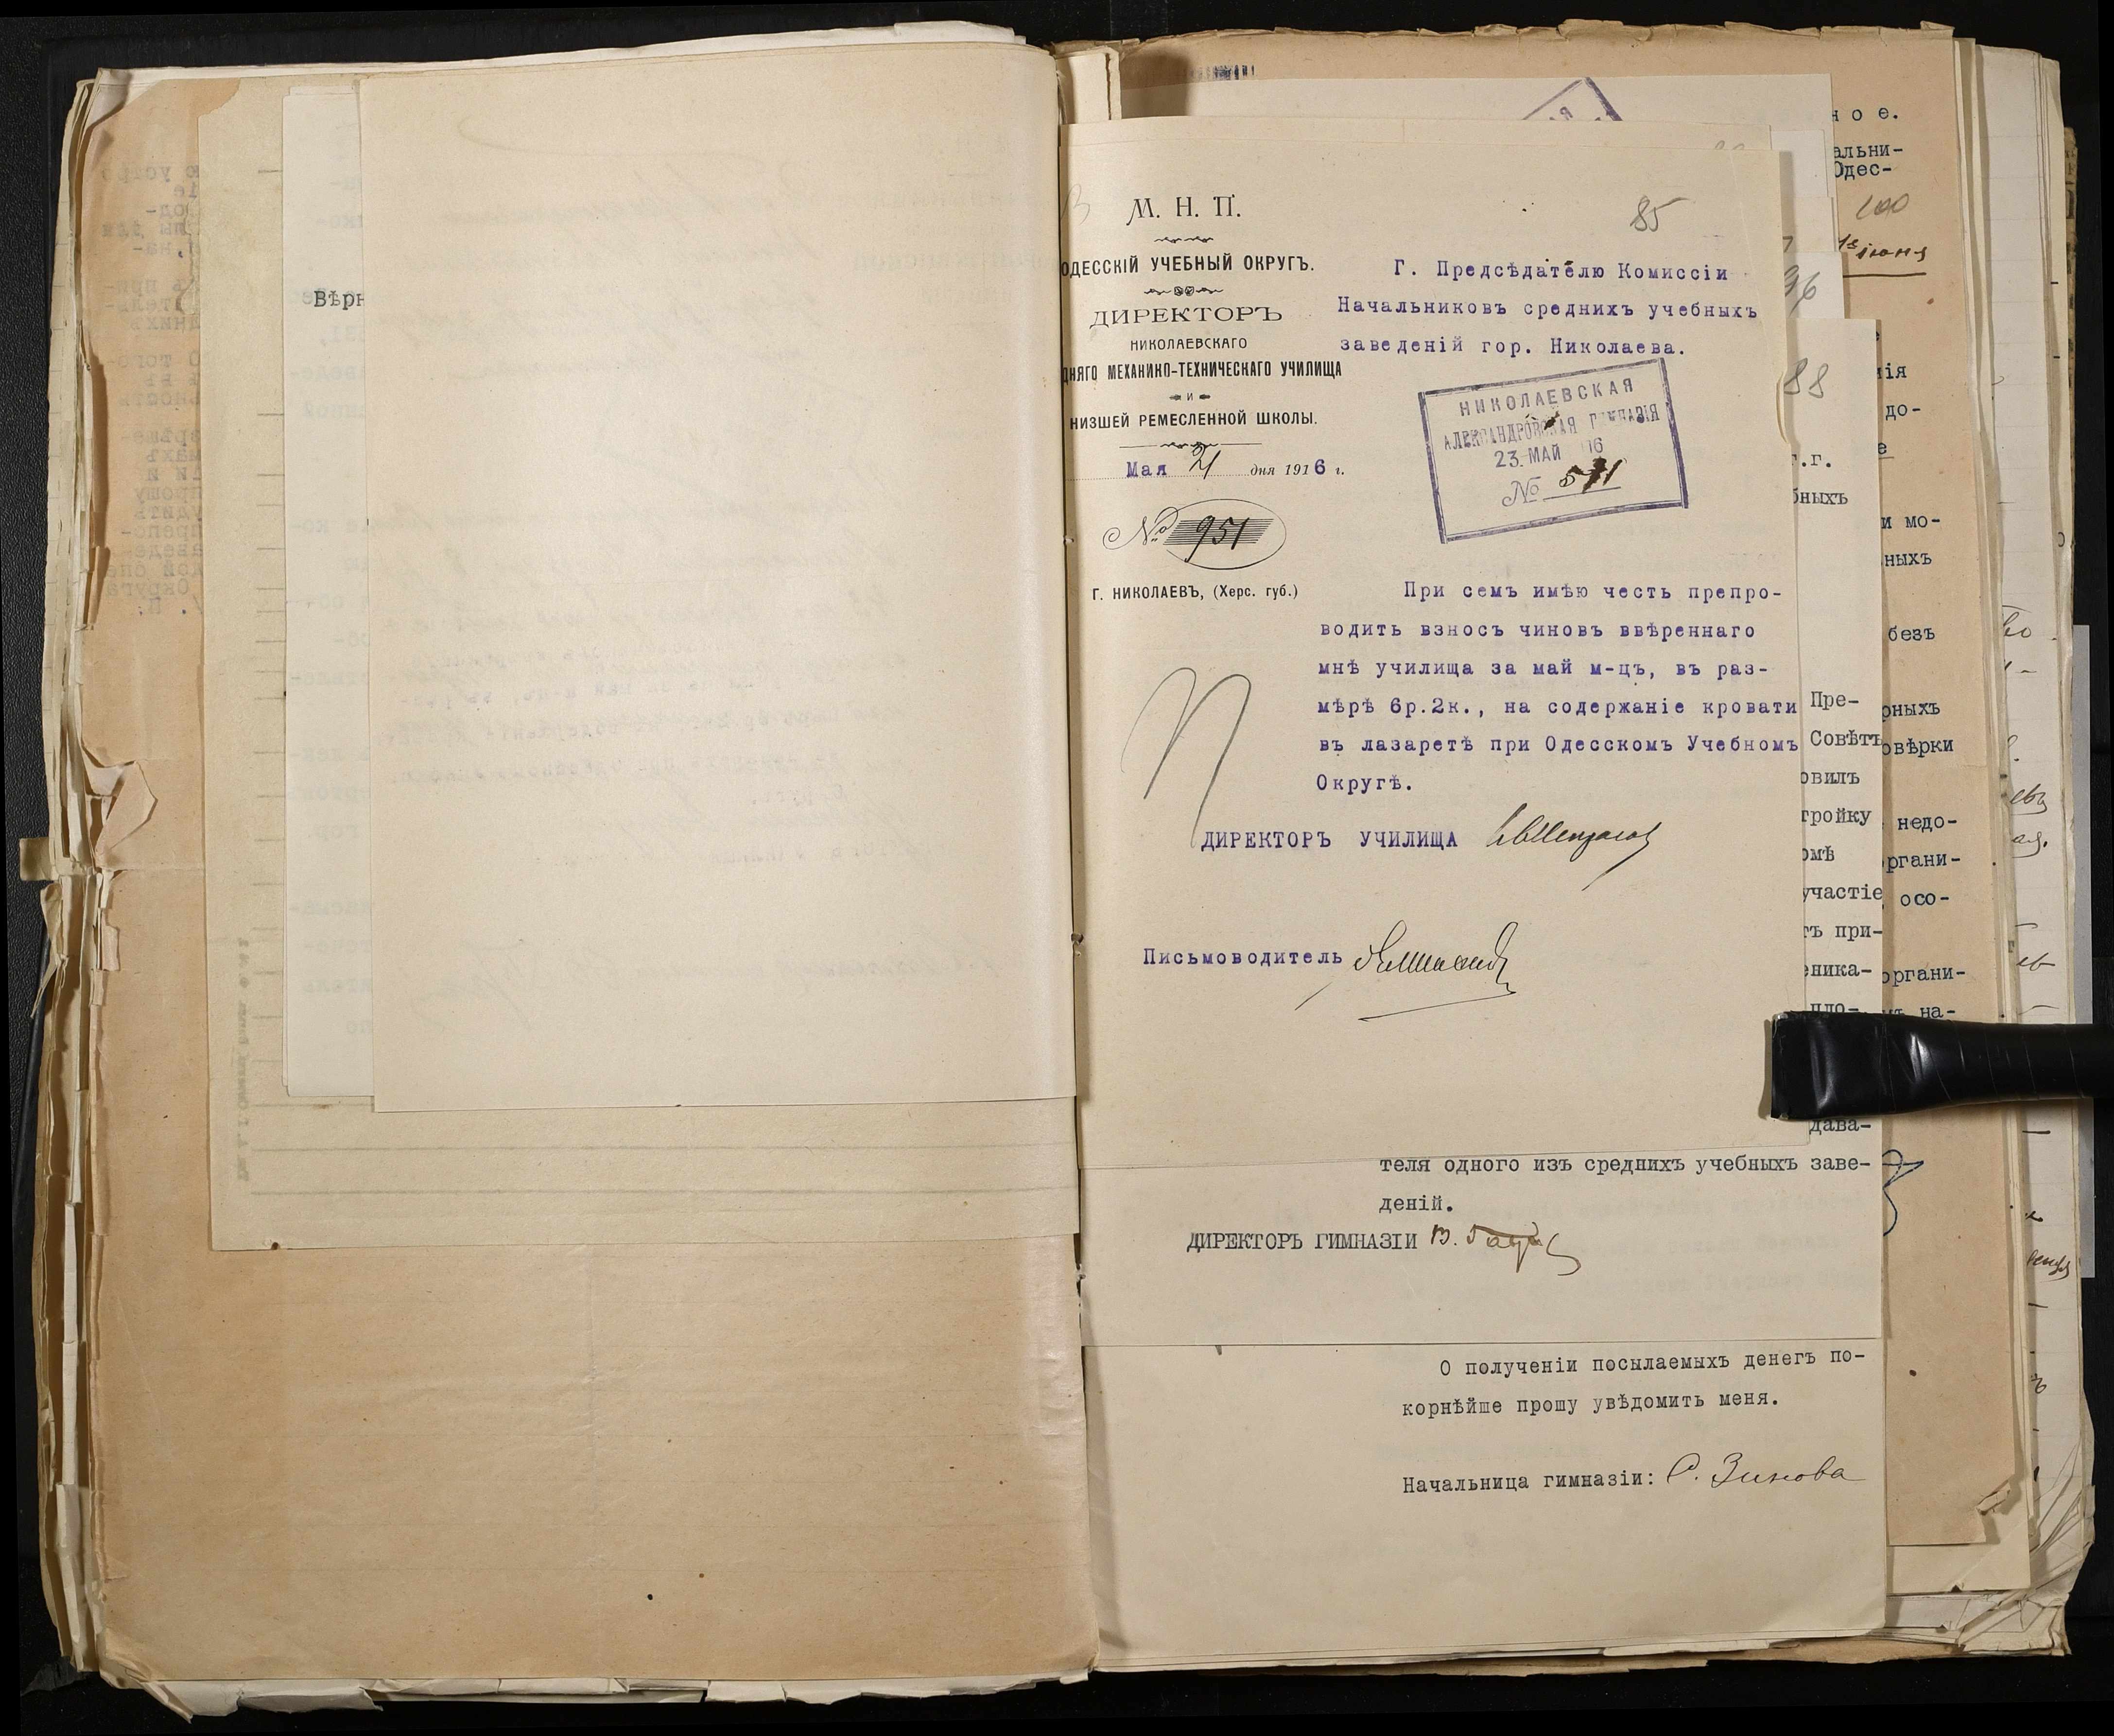 Вѣрн
М. Н. П.
ОДЕССКІЙ УЧЕБНЫЙ ОКРУГЪ.
ДИРЕКТОРЪ
НИКОЛАЕВСКАГО
ДНЯГО МЕХАНИКО-ТЕХНИЧЕСКАГО УЧИЛИЩА
И
НИЗШЕЙ РЕМЕСЛЕННОЙ ШКОЛЫ.
Мая 21 дня 1916 г.
№ 951
Г. НИКОЛАЕВЪ, (Херс. губ.)
85
Г. Предсѣдателю Комиссіи
Начальниковъ среднихъ учебныхъ
заведеній гор. Николаева.
НИКОЛАЕВСКАЯ
АЛЕКСАНДРОВСКАЯ ГИМНАЗІЯ
23. МАЙ 16
№ 571
При семъ имѣю честь препро-
водить взносъ чиновъ ввѣреннаго
мнѣ училища за май м-цъ, въ раз-
мѣрѣ 6р.2к., на содержаніе кровати
въ лазаретѣ при Одесскомъ Учебномъ
Округѣ.
ДИРЕКТОРЪ УЧИЛИЩА
Письмоводитель
теля одного изъ среднихъ учебныхъ заве-
деній.
ДИРЕКТОРЪ ГИМНАЗІИ В.
О полученіи посылаемыхъ денегъ по-
корнѣйше прошу увѣдомить меня.
Начальница гимназіи: С. Зинова
96
88
г.г.
бныхъ
Пре-
Совѣтъ
овил
тройку
омѣ
участіе
тъ при-
еника-
дава-
ное.
альни-
Одес-
100
іюня
нія
до-
е
и мо-
ныхъ
безъ
рныхъ
овѣрки
недо-
ргани-
осо-
органи-
на-